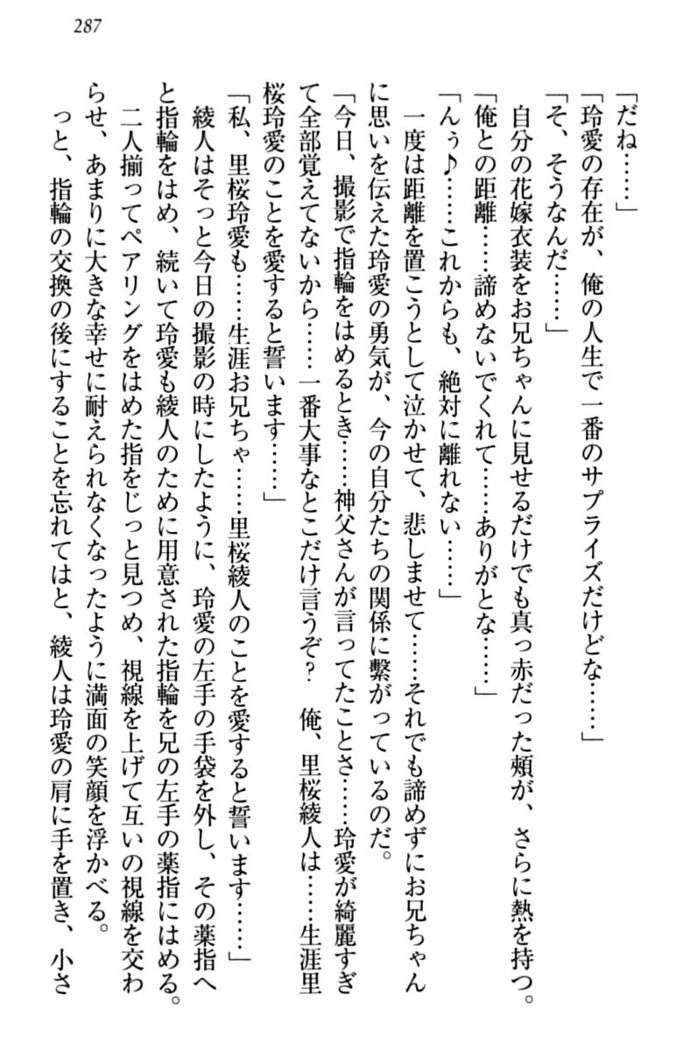 287
「だね……」
「玲愛の存在が、俺の人生で一番のサプライズだけどな……」
「そ、そうなんだ……」
自分の花嫁衣装をお兄ちゃんに見せるだけでも真っ赤だった頬が、さらに熱を持つ。
「俺との距離……諦めないでくれて……ありがとな……」
「んぅ♪……これからも、絶対に離れない……」
一度は距離を置こうとして泣かせて、悲しませて……それでも諦めずにお兄ちゃん
に思いを伝えた玲愛の勇気が、今の自分たちの関係に繋がっているのだ。
「今日、撮影で指輪をはめるとき……神父さんが言ってたことさ……玲愛が綺麗すぎ
て全部覚えてないから……一番大事なとこだけ言うぞ？　俺、里桜綾人は……生涯里
桜玲愛のことを愛すると誓います……」
「私、里桜玲愛も……生涯お兄ちゃ……里桜綾人のことを愛すると誓います……」
綾人はそっと今日の撮影の時にしたように、玲愛の左手の手袋を外し、その薬指へ
と指輪をはめ、続いて玲愛も綾人のために用意された指輪を兄の左手の薬指にはめる。
二人揃ってペアリングをはめた指をじっと見つめ、視線を上げて互いの視線を交わ
らせ、あまりに大きな幸せに耐えられなくなったように満面の笑顔を浮かべる。
っと、指輪の交換の後にすることを忘れてはと、綾人は玲愛の肩に手を置き、小さ